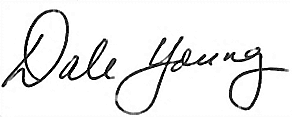 Dale Young